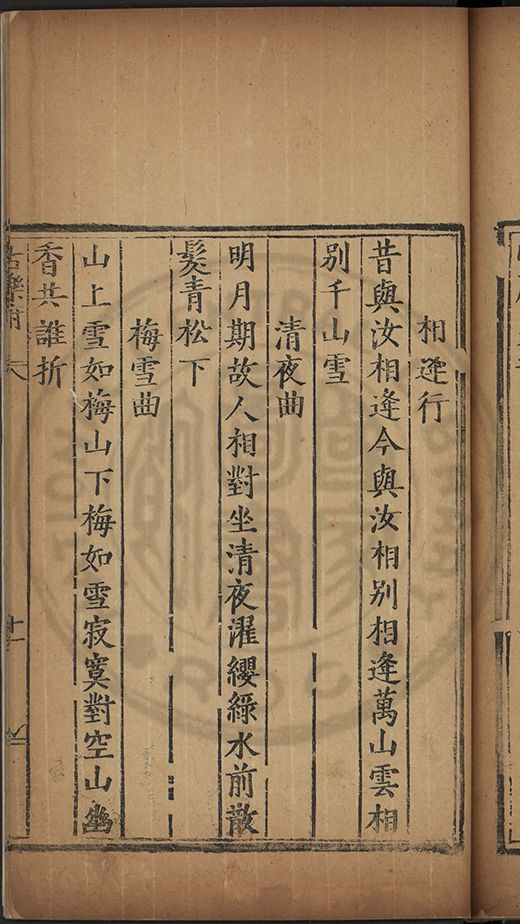 相逢行
昔與汝相逢今與汝相別相逢萬山雲相
別千山雪
清夜曲
明月期故人相對坐清夜濯纓綠水前散
髮青松下
梅雪曲
山上雪如梅山下梅如雪寂寞對空山幽
香共誰折
古樂府 六 十一